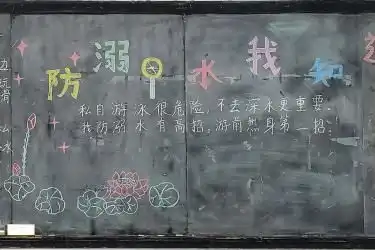 防溺水我知
私自游泳很危险，不去深水更重要。
我防溺水有高招，游前热身第一招！